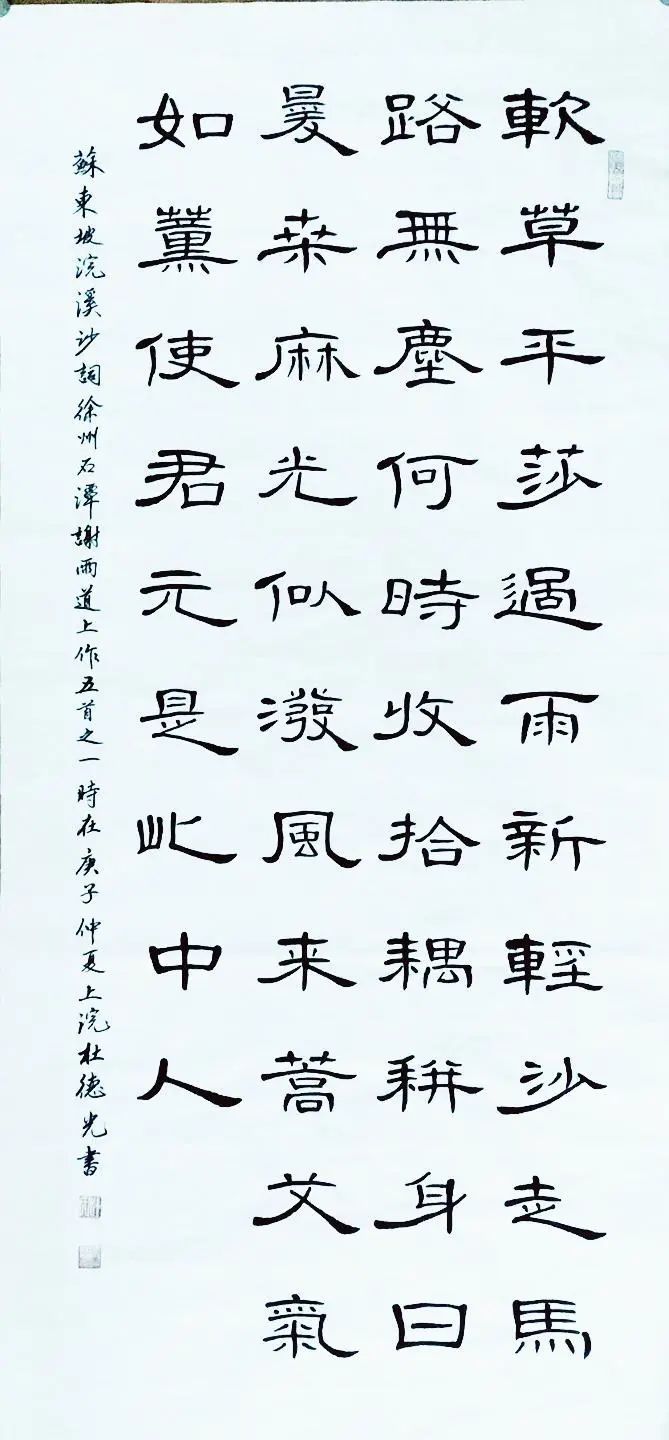 軟草平莎過雨新輕沙走馬
路無塵何時收拾耦耕身日
暖桒麻光似潑風来蒿艾氣
如薰使君元是此中人
蘇東坡浣溪沙詞徐州石潭謝雨道上作五首之一時在庚子仲夏上浣杜德光書